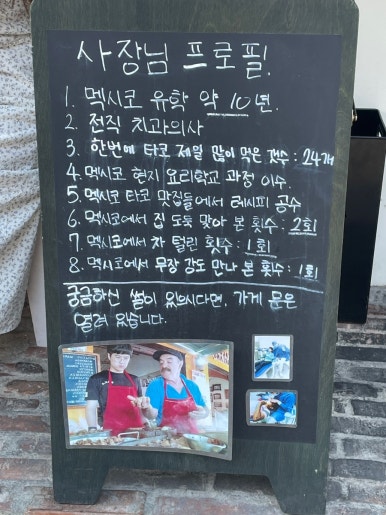 사장님 프로필!
1. 멕시코 유학 약 10년.
2. 전직 치과의사
3. 한번에 타코 제일 많이 먹은 갯수 : 24개
4. 멕시코 현지 요리학교 과정 이수.
5. 멕시코 타코 맛집들에서 레시피 공수
6. 멕시코에서 집 도둑 맞아 본 횟수 : 2회
7. 멕시코에서 차 털린 횟수 : 1회
8. 멕시코에서 무장 강도 만나 본 횟수 : 1회
궁금하신 썰이 있으시다면, 가게 문은
열려 있습니다.